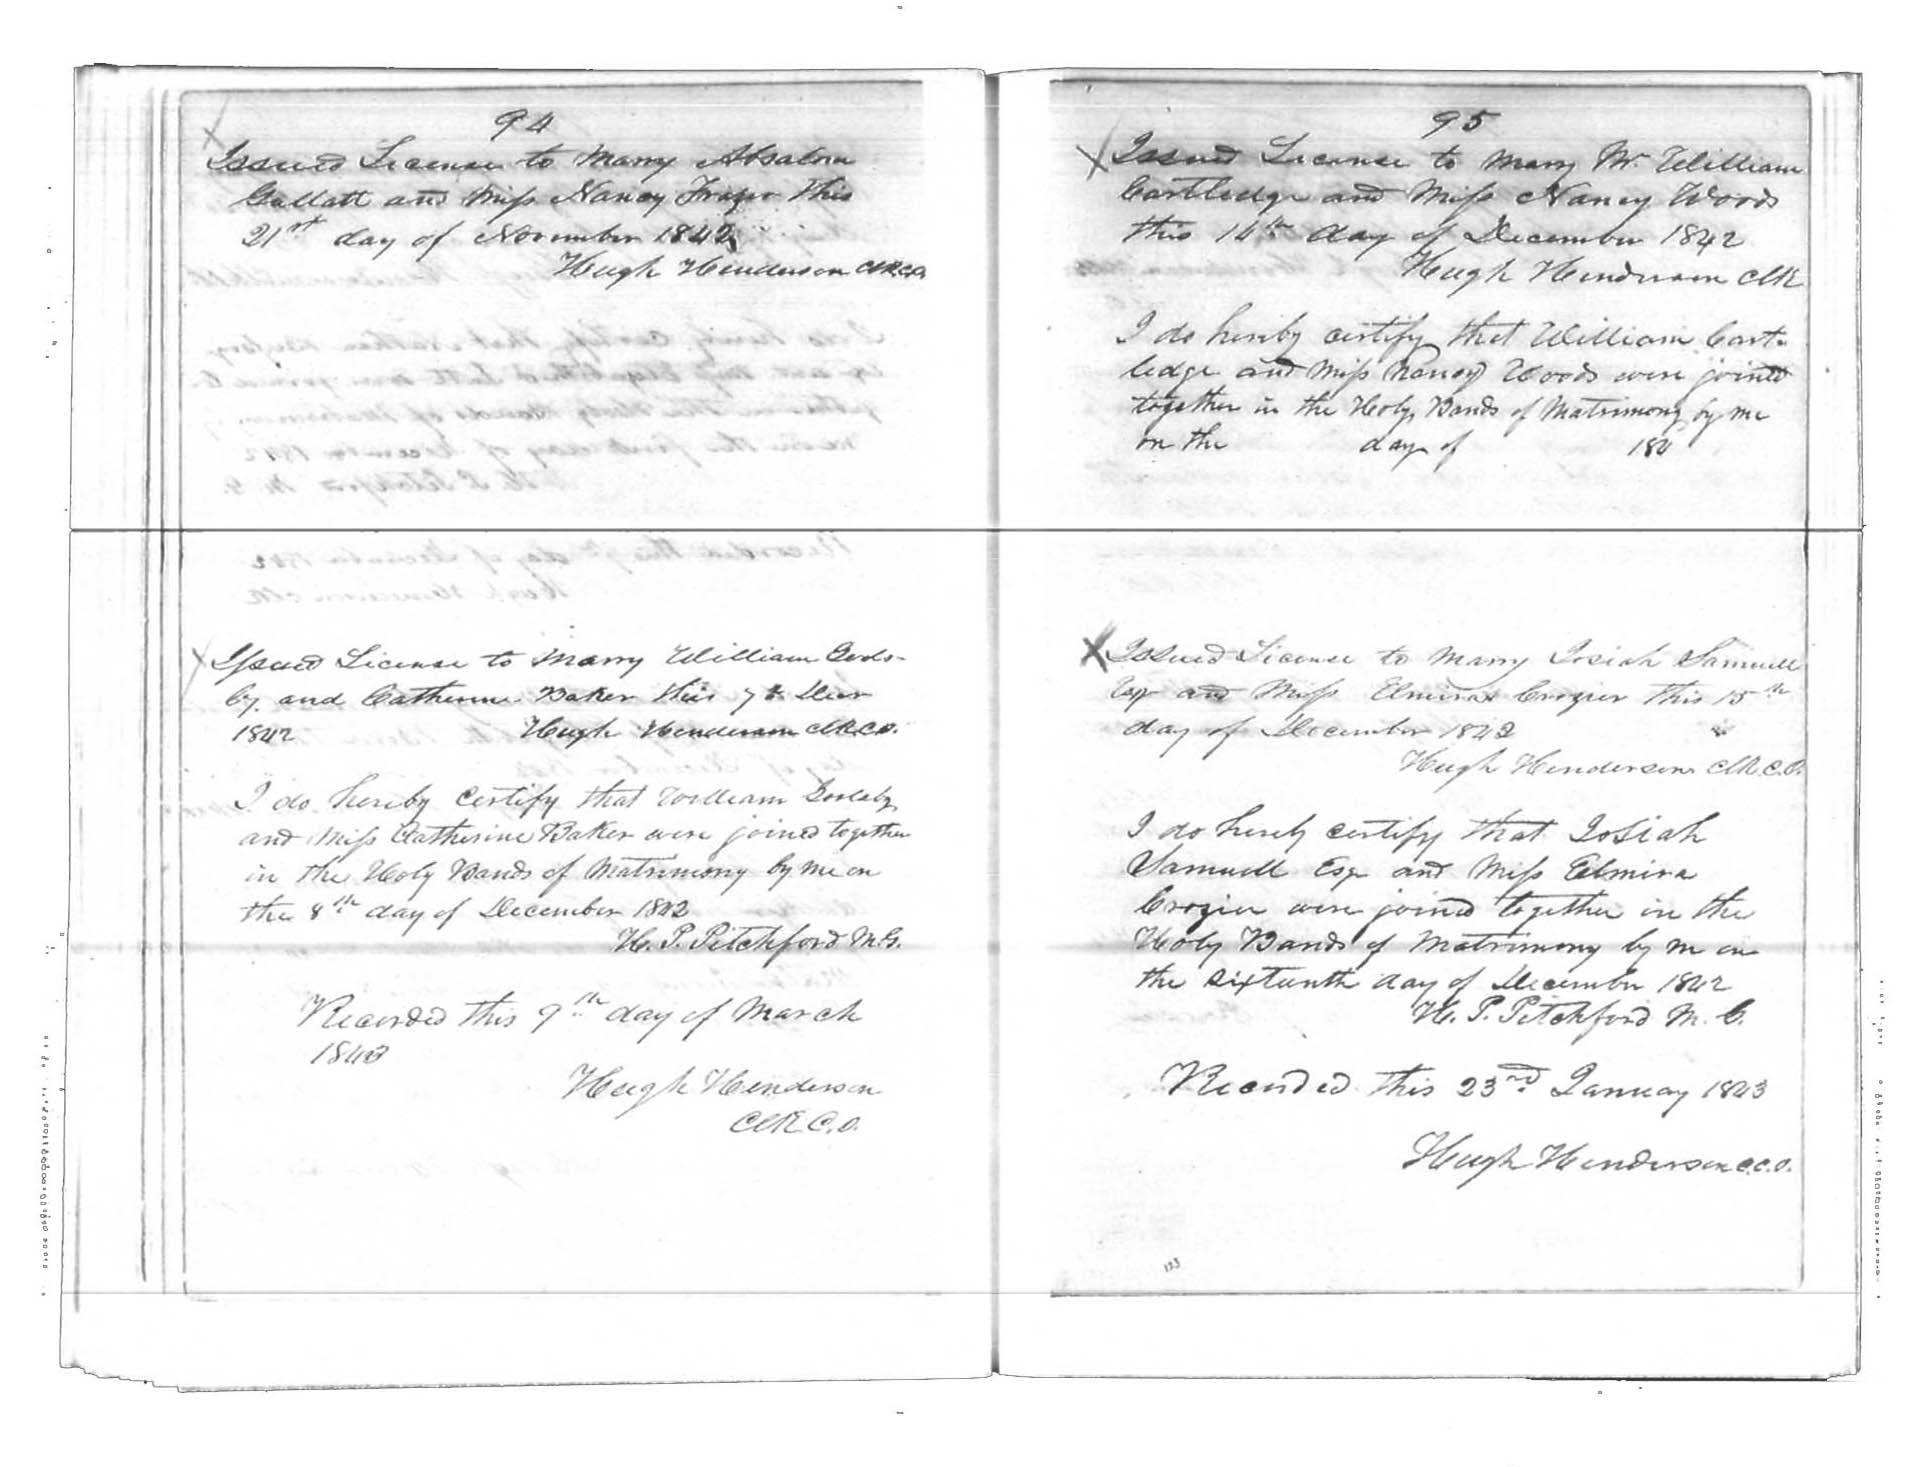 94
Issued License to Marry Absalom
Gallatt and Miss Nancy Frazer this
21st day of November 1842
Hugh Henderson Clk C.O.
Issued License to Marry William Gods-
by and Catherine Baker this 7th Decr
1842 Hugh Henderson Clk C.O.
I do hereby certify that William
and Miss Catherine Baker were joined together
in the Holy Bands of Matrimony by me on
the 8th day of December 1842
H. P. Pitchford M.G.
Recorded this 9th day of March
1843
Hugh Henderson
Clk C.O.
95
Issued License to Marry Mr William
Cartledge and Miss Nancy Woods
this 14th day of December 1842
Hugh Henderson Clk
I do hereby certify that William Cart-
ledge and Miss Nancy Woods were joined
together in the Holy Bands of Matrimony by me
on the day of 184
Issued License to Marry Josiah Samuell
Esqr and Miss Elmira Crozier this 15th
day of December 1842
Hugh Henderson Clk C.O.
I do hereby certify that Josiah
Samuell Esqr and Miss Elmira
Crozier were joined together in the
Holy Bands of Matrimony by me on
the sixteenth day of December 1842
H. P. Pitchford M. G.
Recorded this 23rd January 1843
Hugh Henderson C.C.O.
123